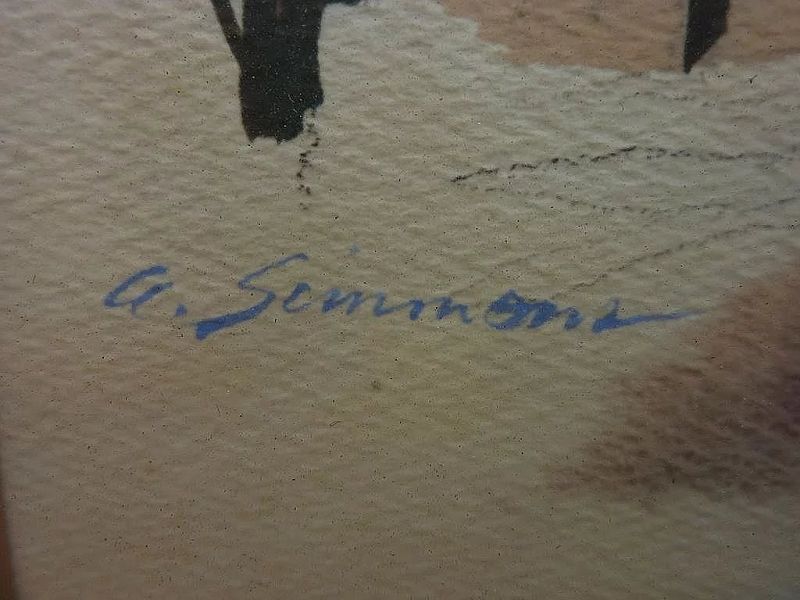 a. Simmons